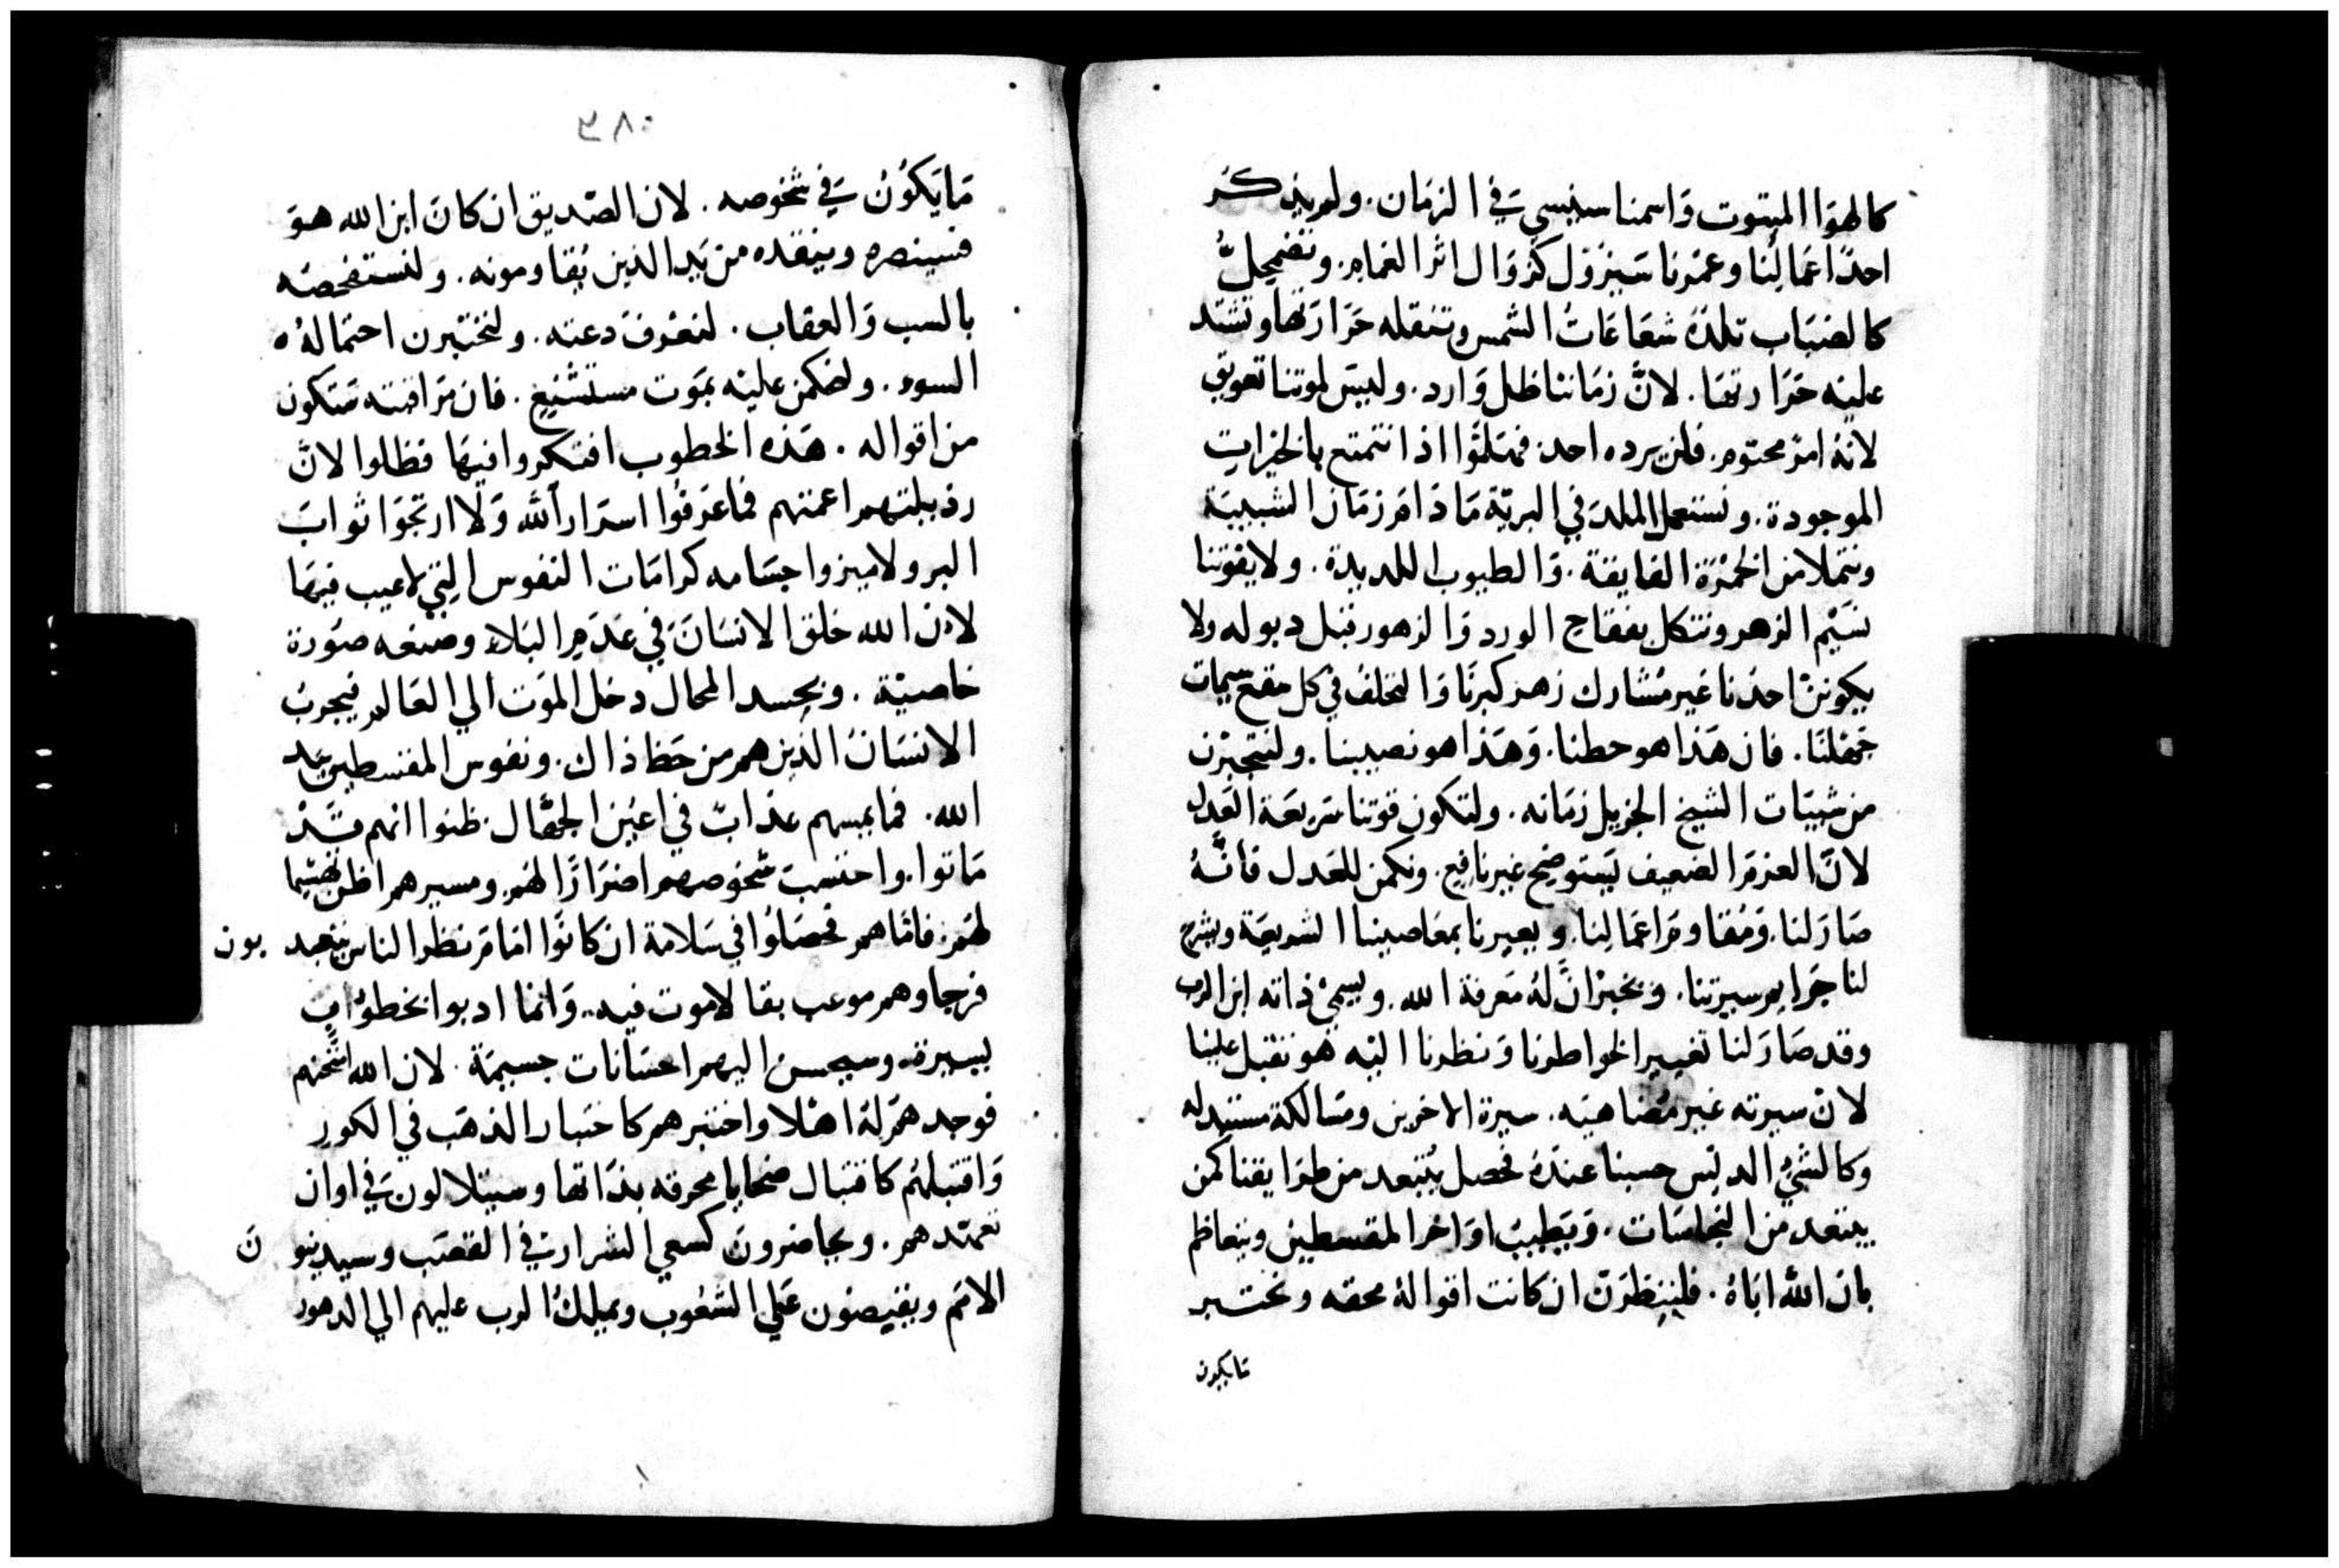 كالهوا المبتوت وَاسمنا سينسي فَي الزمَان. ولم يذكَر
احدًا عمَالُنا وعمْرنا سَيزول كزوَال اثر الغمَام. وتضمحلُّ
كالضبَاب تلدَهُ شعَاعَاتُ الشمس وتنقله حَرَارَتها وتشتد
عليْه حَرَارتهَا. لانَّ زمَاننا ظل وَارد. وليسَ لموتنا تعويق
لانهُ امرْ محتوم. فلن يرده احد. فهَلمُّوا اذا نتمتع بالخيرات
الموجودة. ونستعمل الملدَ في البريّة مَا دَامَ زمَان الشبيبَة
ونتملا من الخمْرَة الفَايقة. وَالطيوب اللديدة. ولا يفوْتنا
نسَيْم الزهر ونتكلل بفقاح الورد وَالزهور قبل دبوله ولا
يكوننْ احدْنا غير مُشارك زهد كبرنَا وَالتخلف في كل مقع سيمات
جَهْلنَا. فان هَذا هو حظنا. وَهَذا هو نصيبنا. ولنتجبّرن
من شيبَات الشيخ الجزيل زمَانه. ولتكون قوتنا شريعَة العَدل
لانَّ العزمَ الضعيف يَستوضح غير نافِع. ونكمن للعَدل فانَّهُ
صَارَ لنا. وَمُقاومَ اعمَالِنا. ويعيرنا بمعَاصينا الشريعَة ويشرح
لنا جَرايم سيرتنا. وَيخبرْ انَّ لهُ مَعرفة الله. ويسمىْ ذاته ابن الرب
وقد صَارَ لنا تغيير الخواطرنا وَنظرنا اليْه هو ثقيل علينا
لانّ سيرته غير مُضاهيَه. سيرة الاخرين ومسَالكهُ مستبدله
وَكالشيْ الدليْس حسبنا عندَهُ فحصل يُبْتعد من طرَايقنا كمن
يبتعد من النجاسَات. وَيطيبُ اوَاخر المقسطين ويتعاظم
بان اللّه ابَاهُ. فلينظرَنّ ان كانت اقوالهُ محقه ونختبر
مَا يكون
٣٨٠
مَا يَكوُنْ فَي شخوصه. لان الصّديق ان كانَ ابن الله هوَ
فسينصره وينقده من يَد الذين يُقاومونه. ولنستفحصَه
بالسب وَالعقاب. لنعْرف دعته. ولنختبْرن احتمَالهُ ه
السوء. ولنحكمن عليْه بمَوت مستشنِع. فان مرَاقبته ستكون
من اقواله. هَذه الخطوب افتكروا فيهَا فظلوا لانَّ
رذيلتهم اعمتهم فما عَرفُوا اسرَار اللّه وَلا ارتجَوَا ثوابَ
البر ولا ميزوا جسَامه كرامَات النفوس التي لا عيب فيهَا
لانّ الله خلق الانسَانَ فَي عَدَم البَلاء وصنعه صوُرة
خاصيّة. وبحسد المحال دخل الموَت الي العَالم. فيجربُ
الانسَانُ الذين هم من حَظ ذاك. ونفوس المقسطين بيَد
الله. فما يمسهم عذابٌ في اعيُن الجهَّال. ظنوا انهم قَدْ
مَاتوا. واحتسبت شخوصهم اضرَارًا لهم. ومسيرهم اظن تهشيما
لهَم. فامّا هم فحصَلوُا في سَلامة ان كانوَّا امَام نظر الناس يتعبد بون
فرجاوهم موعب بقا لا موت فيه. وَانما ادبوا بخطوُاتٍ
يسيرة. وسيحسن اليهم احسَانات جسيمَة. لان الله امتْحَنهم
فوجدهمَ لهُ اهْلا واختبرهم كاختبار الذهَب في الكور
وَاقتبَلهُم كاقتبال ضحايا محرقه بذَاتها وسيتلالون فَي اوان
تعهّدهم. ويحاضرونَ كسعي الشرارة في القصَب وسيدينو نَ
الامَم ويفيضون عَلي الشعُوب ويملِكُ الرب عليهم الي الدهور